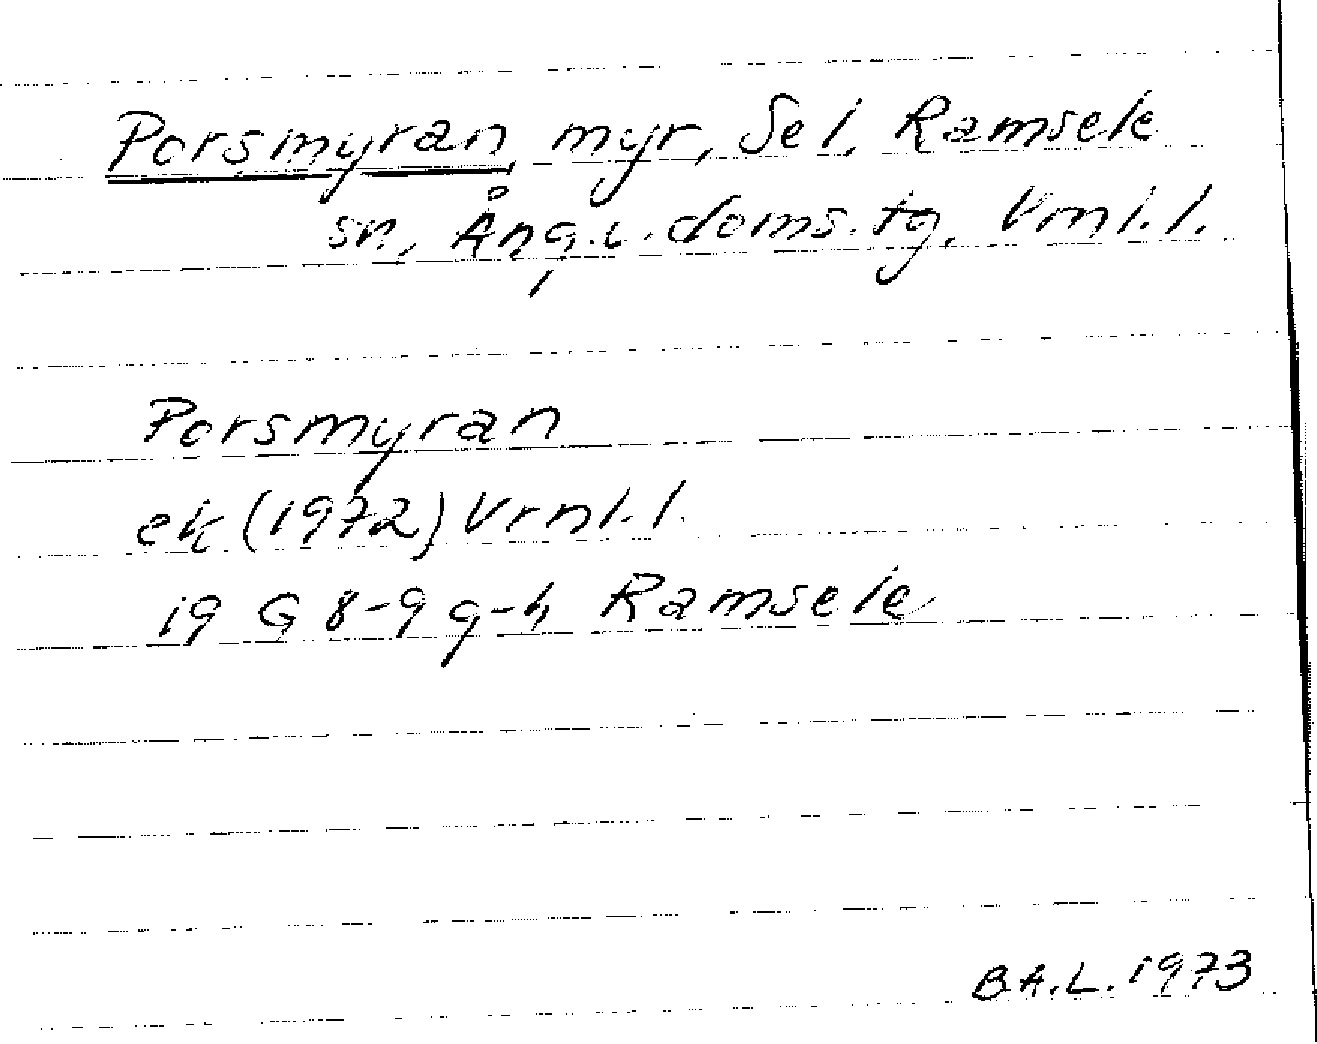 Porsmyran, myr, Sel, Ramsele
sn, Ång.v.doms.tg. Vrnl.l.
Porsmyran
ek (1972) Vrnl.l.
19 G 8-9 g-h Ramsele
B.A.L. 1973